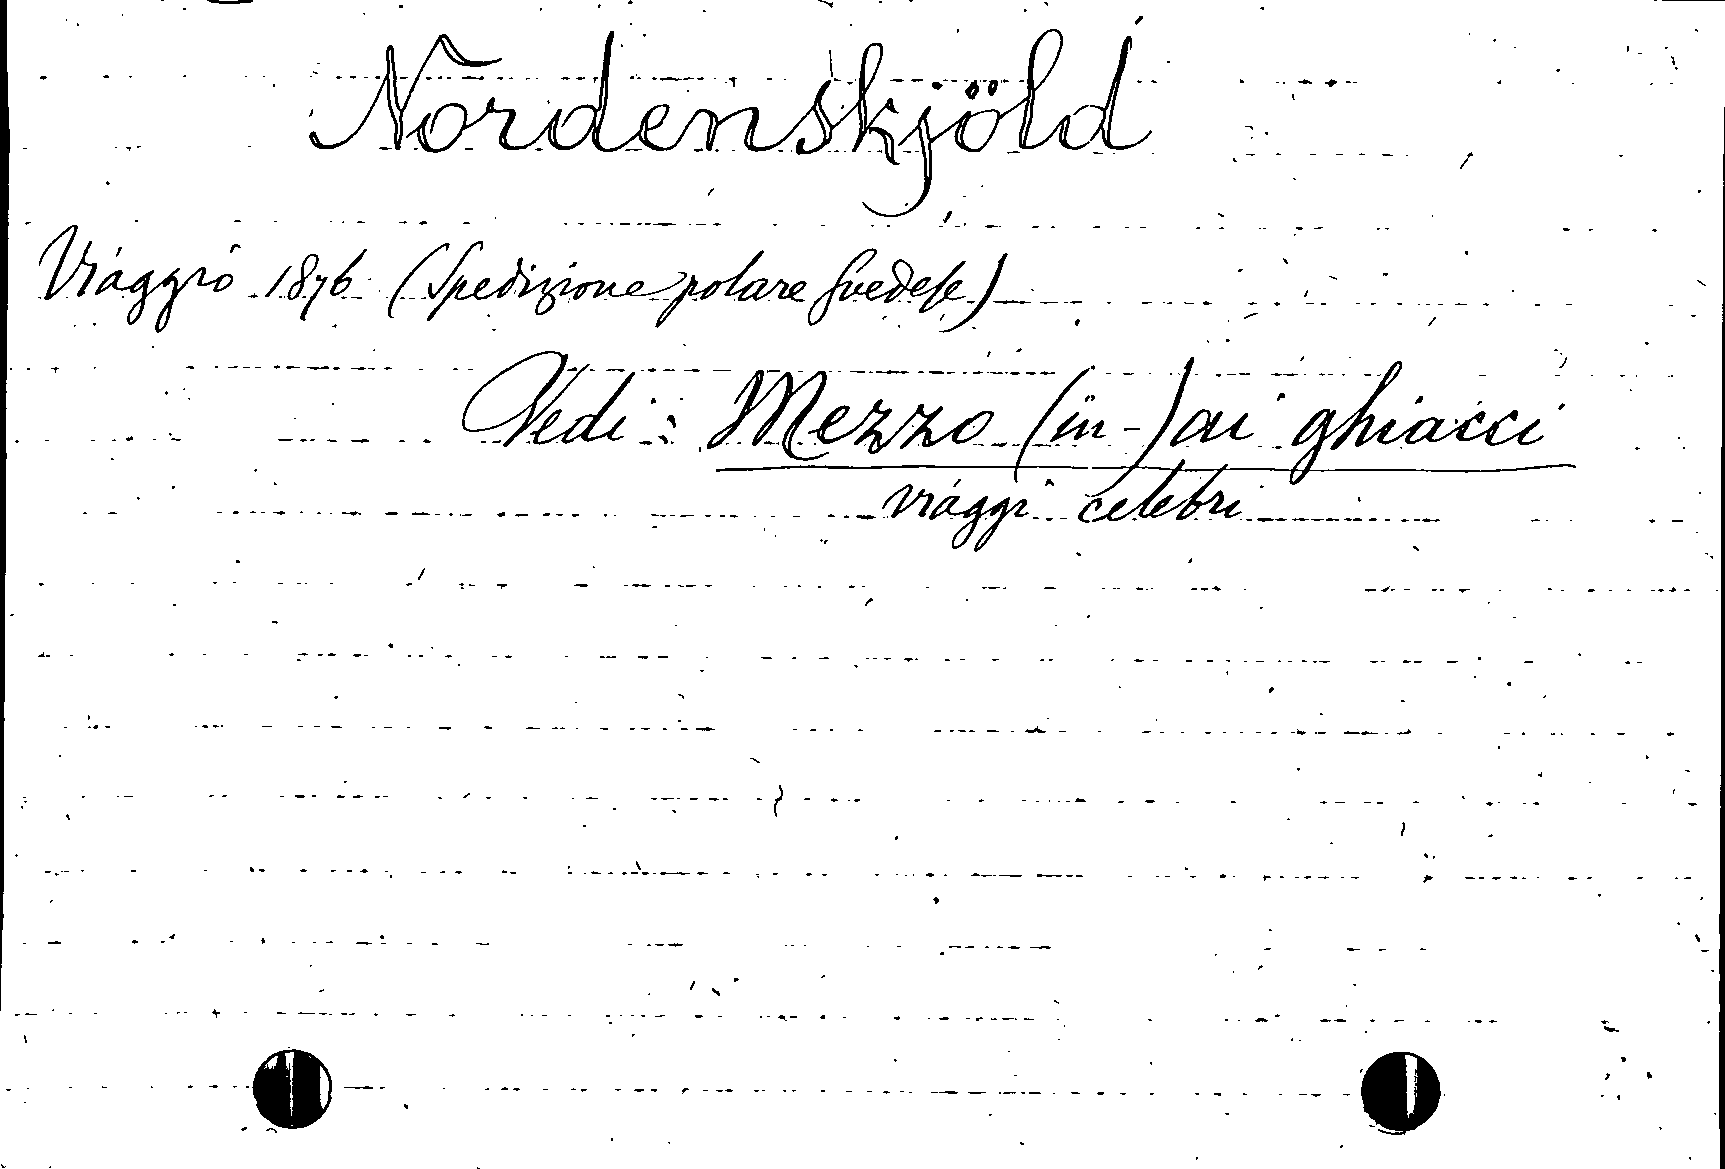 Nordenskjöld
Viaggio 1876 (Spedizione polare svedese)
Vedi: Mezzo (in-) ai ghiacci
viaggi celebri